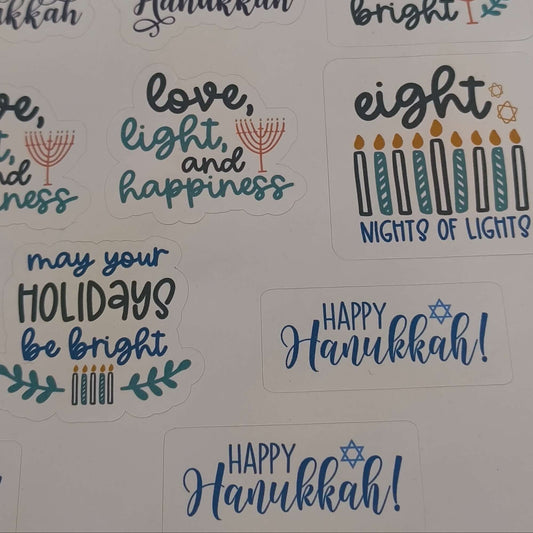 Hanukkah
bright
love,
light,
and
happiness
eight
NIGHTS OF LIGHTS
may your
HOLIDAYS
be bright
HAPPY
Hanukkah!
HAPPY
Hanukkah!